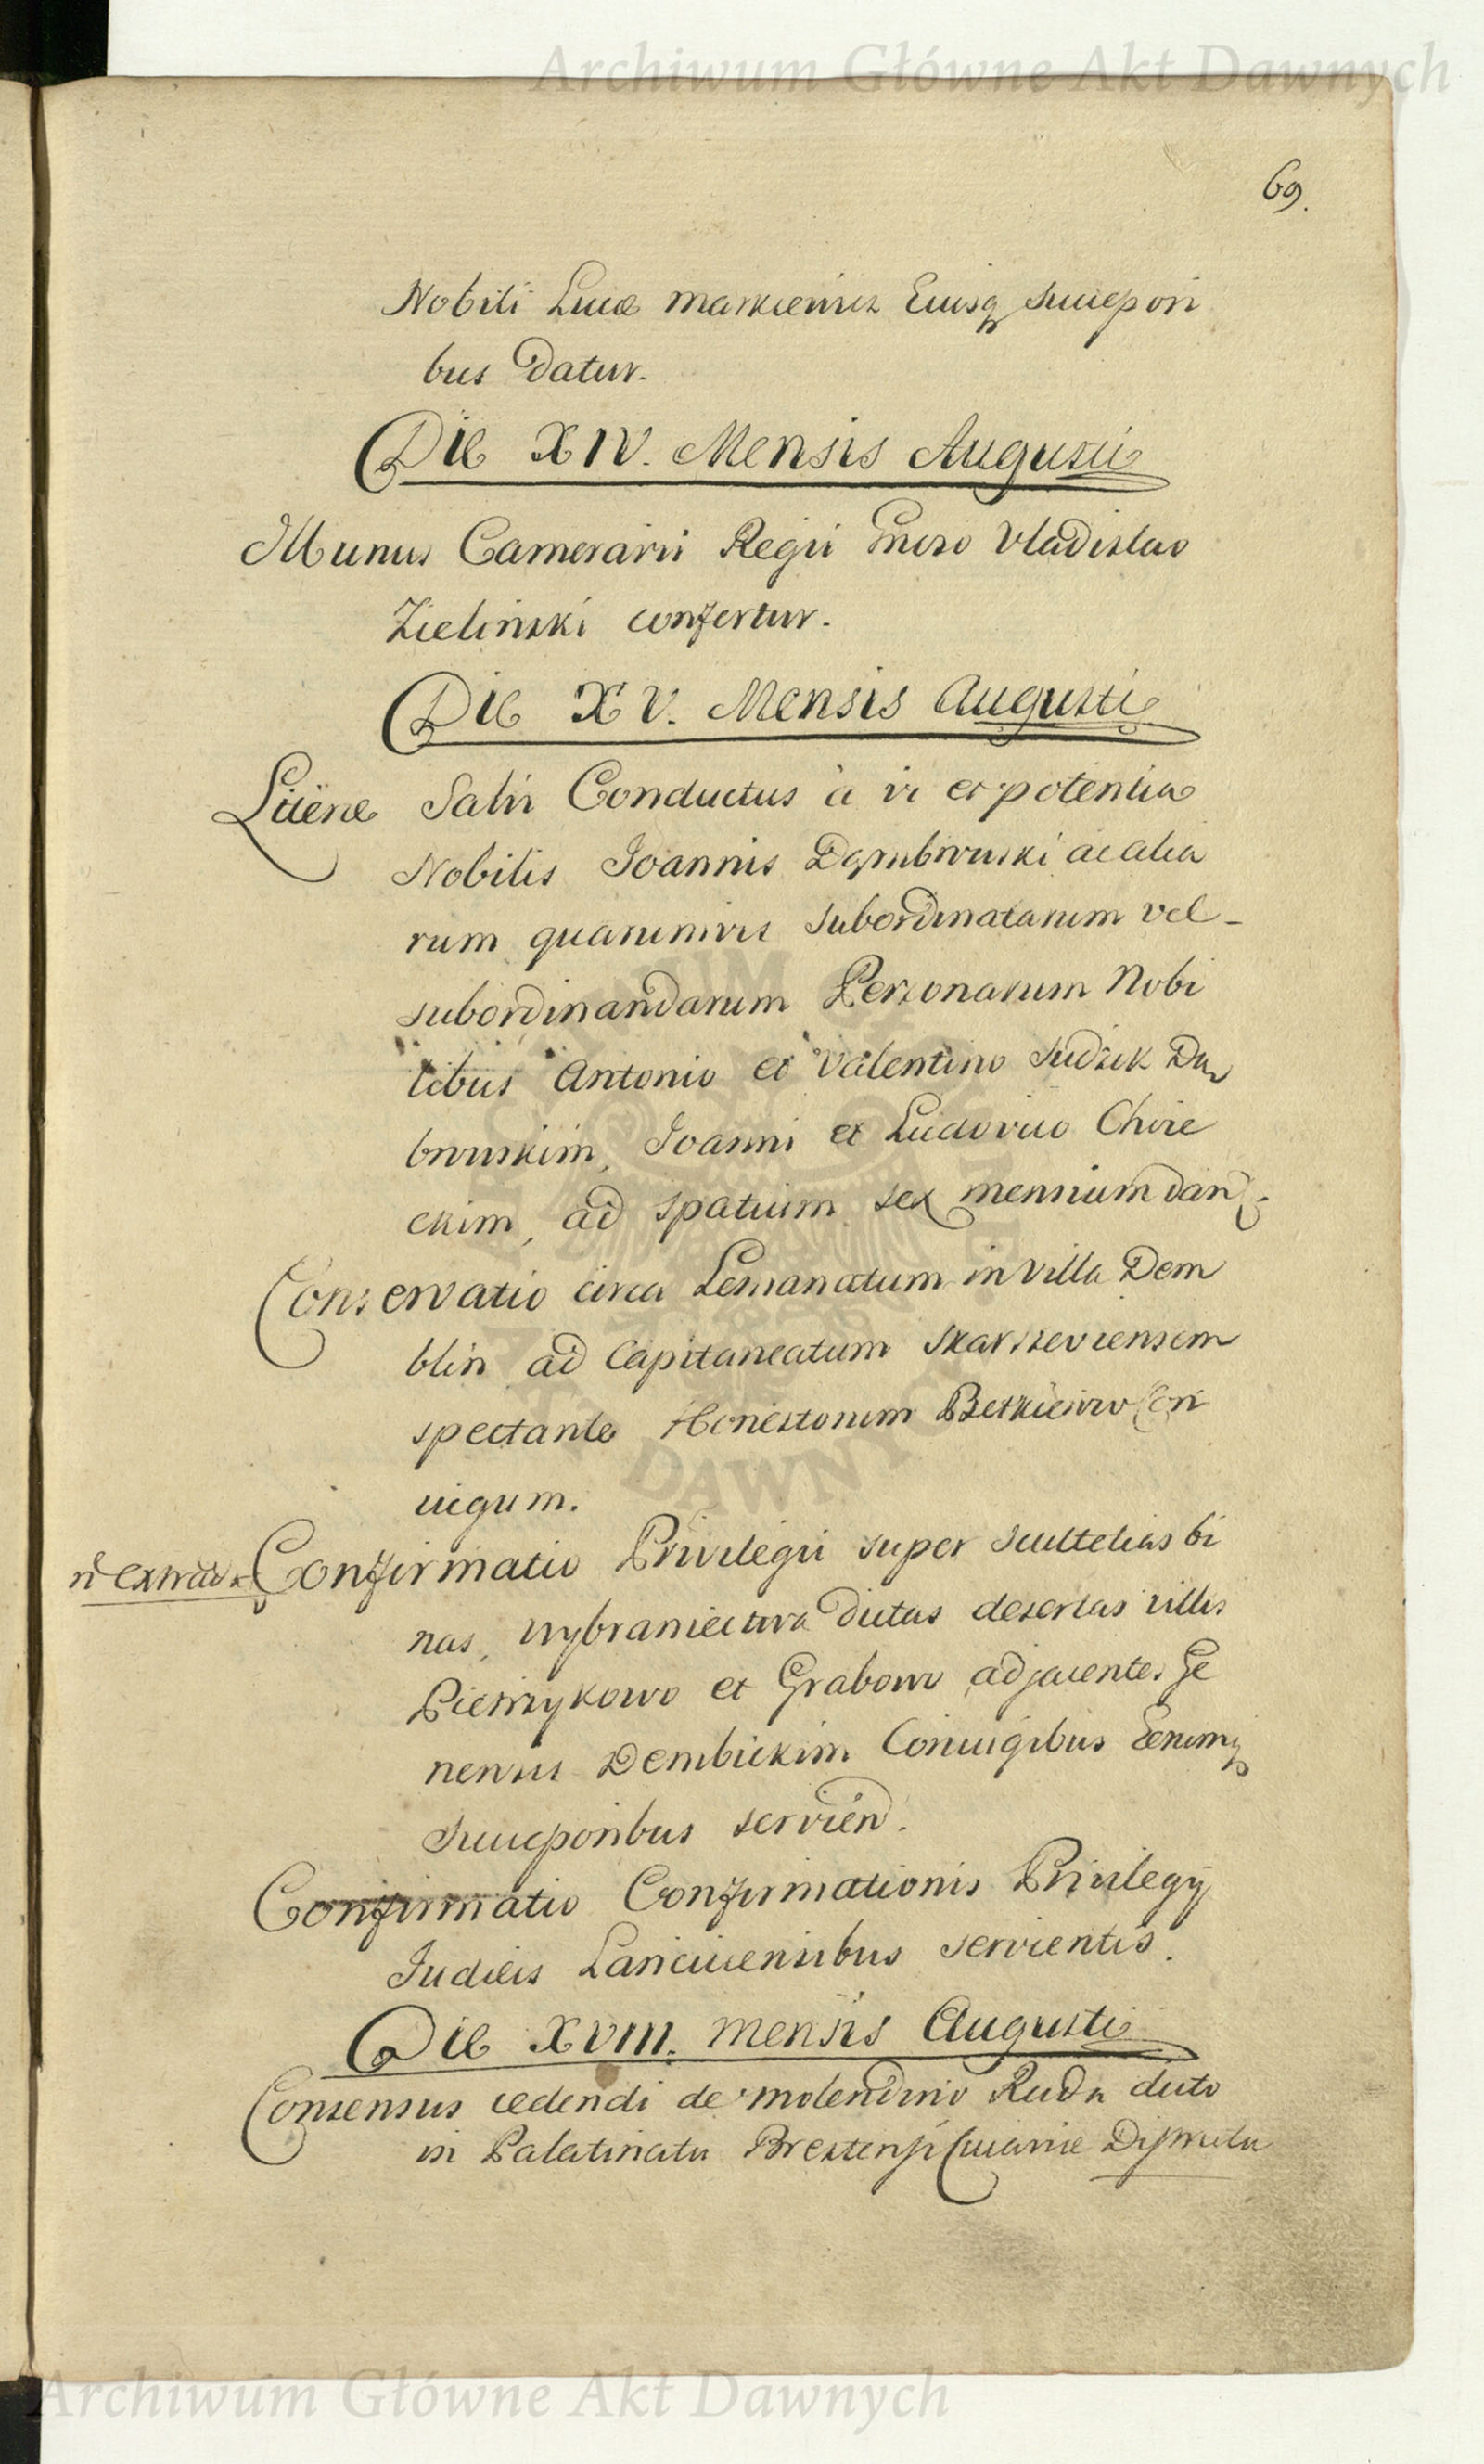 Archiwum Główne Akt Dawnych
69.
Nobili Lucæ Markiewicz Eiusq succepori
bus Datur.
Die XIV. Mensis Augusti
Munus Camerarii Regii Gneroso Vladislao
Zielinski confertur.
Die XV. Mensis Augusti
Literæ Salvi Conductus à vi et potentia
Nobilis Joannis Dąmbrowski ac alia
rum quarumvis subordinatarum vel
subordinandarum Personarum Nobi
libus Antonio et Valentino Sudzik Dą
browskim, Joanni et Ludovico Choie
ckim, ad spatium sex mensium dan.
Conservatio circa Lemanatum in Villa Dem
blin ad Capitaneatum Skarszeviensem
spectante Honestorum Betkiewiow Con
iugum.
n extrad
Confirmatio Privilegii super Scultetias bi
nas, wybraniectwa dictas desertas villis
Pietrzykowo et Grabowo adjacentes Ge
nerosis Dembickim Coniugibus Eorumq
Succeporibus servien.
Confirmatio Confirmationis Privilegij
Judicis Lanciciensibus servientis.
Die XVIII. Mensis Augusti
Consensus cedendi de molendino Ruda dicto
in Palatinatu Brestensi Cuiaviæ
Archiwum Główne Akt Dawnych